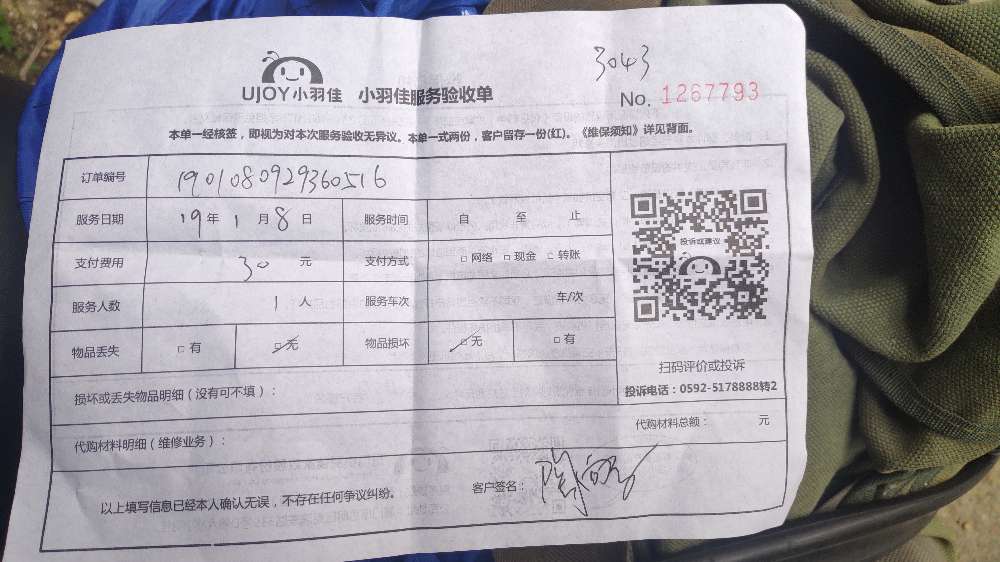 3043
UJOY小羽佳 小羽佳服务验收单
No. 1267793
本单一经核签，即视为对本次服务验收无异议。本单一式两份，客户留存一份(红)。《维保须知》详见背面。
订单编号 190108092936051 6
服务日期 19年1月8日 服务时间 自 至 止
支付费用 30元 支付方式 □网络 □现金 □转账
服务人数 1人 服务车次 车/次
物品丢失 □有 □无 物品损坏 □无 □有
投诉或建议
扫码评价或投诉
投诉电话：0592-5178888转2
损坏或丢失物品明细（没有可不填）：
代购材料明细（维修业务）： 代购材料总额： 元
以上填写信息已经本人确认无误，不存在任何争议纠纷。 客户签名：